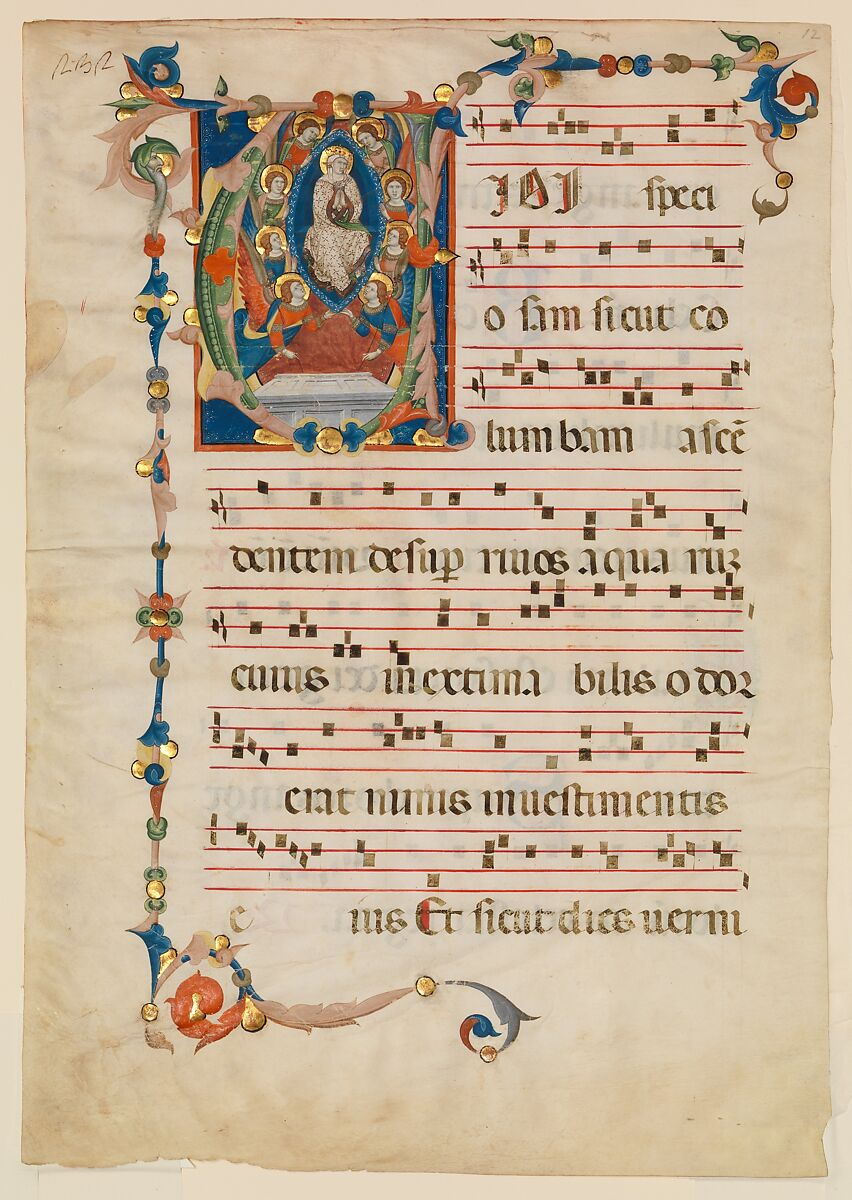 12
VIDI speci
o sam sicut co
lum bam ascē
dentem desuꝑ riuos a qua ruꝫ
cuius in extima bilis o doꝛ
erat nimis in uestimentis
e ius Et sicut dies uerni